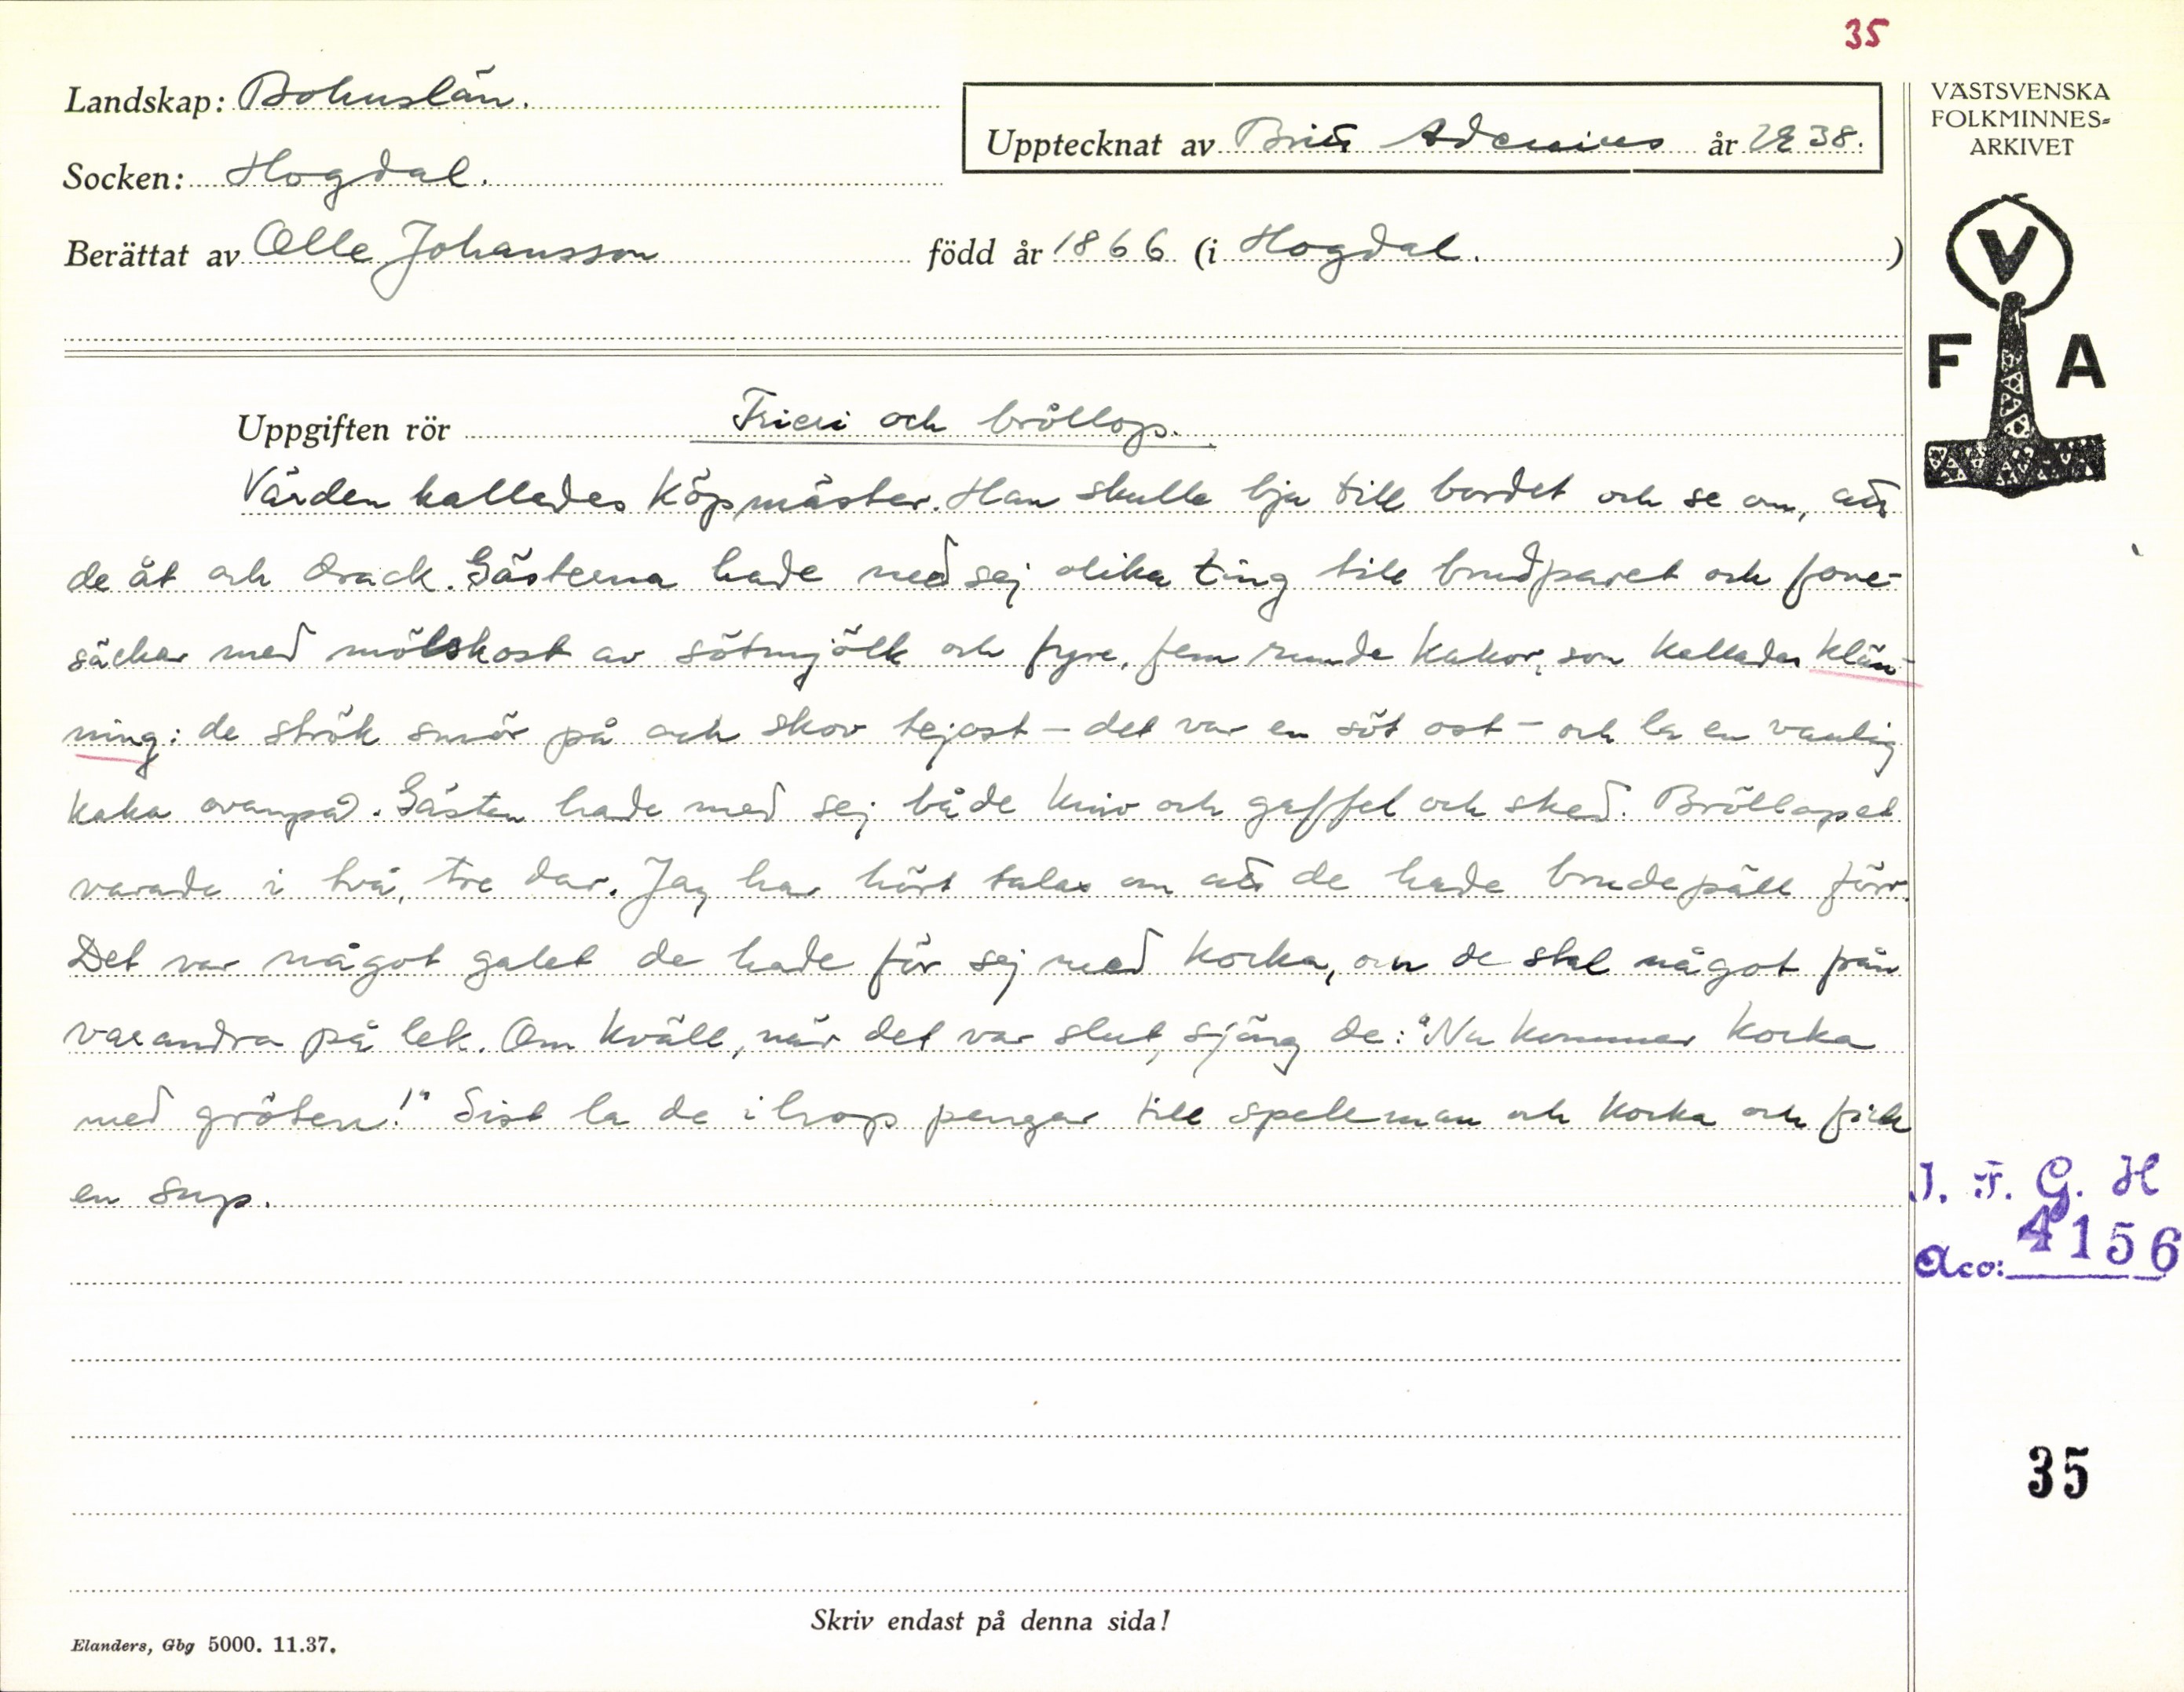 35
Landskap: Bohuslän.
Upptecknat av Britt Adenius år 1938.
VÄSTSVENSKA
FOLKMINNES-
ARKIVET
Socken: Hogdal.
Berättat av Olle Johansson född år 1866 (i Hogdal.)
V
F A
Uppgiften rör Frieri och bröllop.
Värden kallades köpmäster. Han skulle bju till bordet och se om, att
de åt och drack. Gästerna hade med sej olika ting till brudparet och
säckar med mölskost av sötmjölk och fyre, fem runda kakor, som kallades klän-
ning: de strök smör på och skov tejost – det var en söt ost – och la en vanlig
kaka ovanpå. Gästen hade med sej både kniv och gaffel och sked. Bröllopet
varade i två, tre dar. Jag har hört talas om att de hade brudepäll förr.
Det var något galet de hade för sej med kocka, om de stal något från
varandra på lek. Om kväll, när det var slut, sjöng de: "Nu kommer kocka
med gröten!" Sist la de ihop pengar till speleman och kocka och fick
en sup.
I. F. G. H
Acc: 4156
35
Skriv endast på denna sida!
Elanders, Gbg 5000. 11.37.